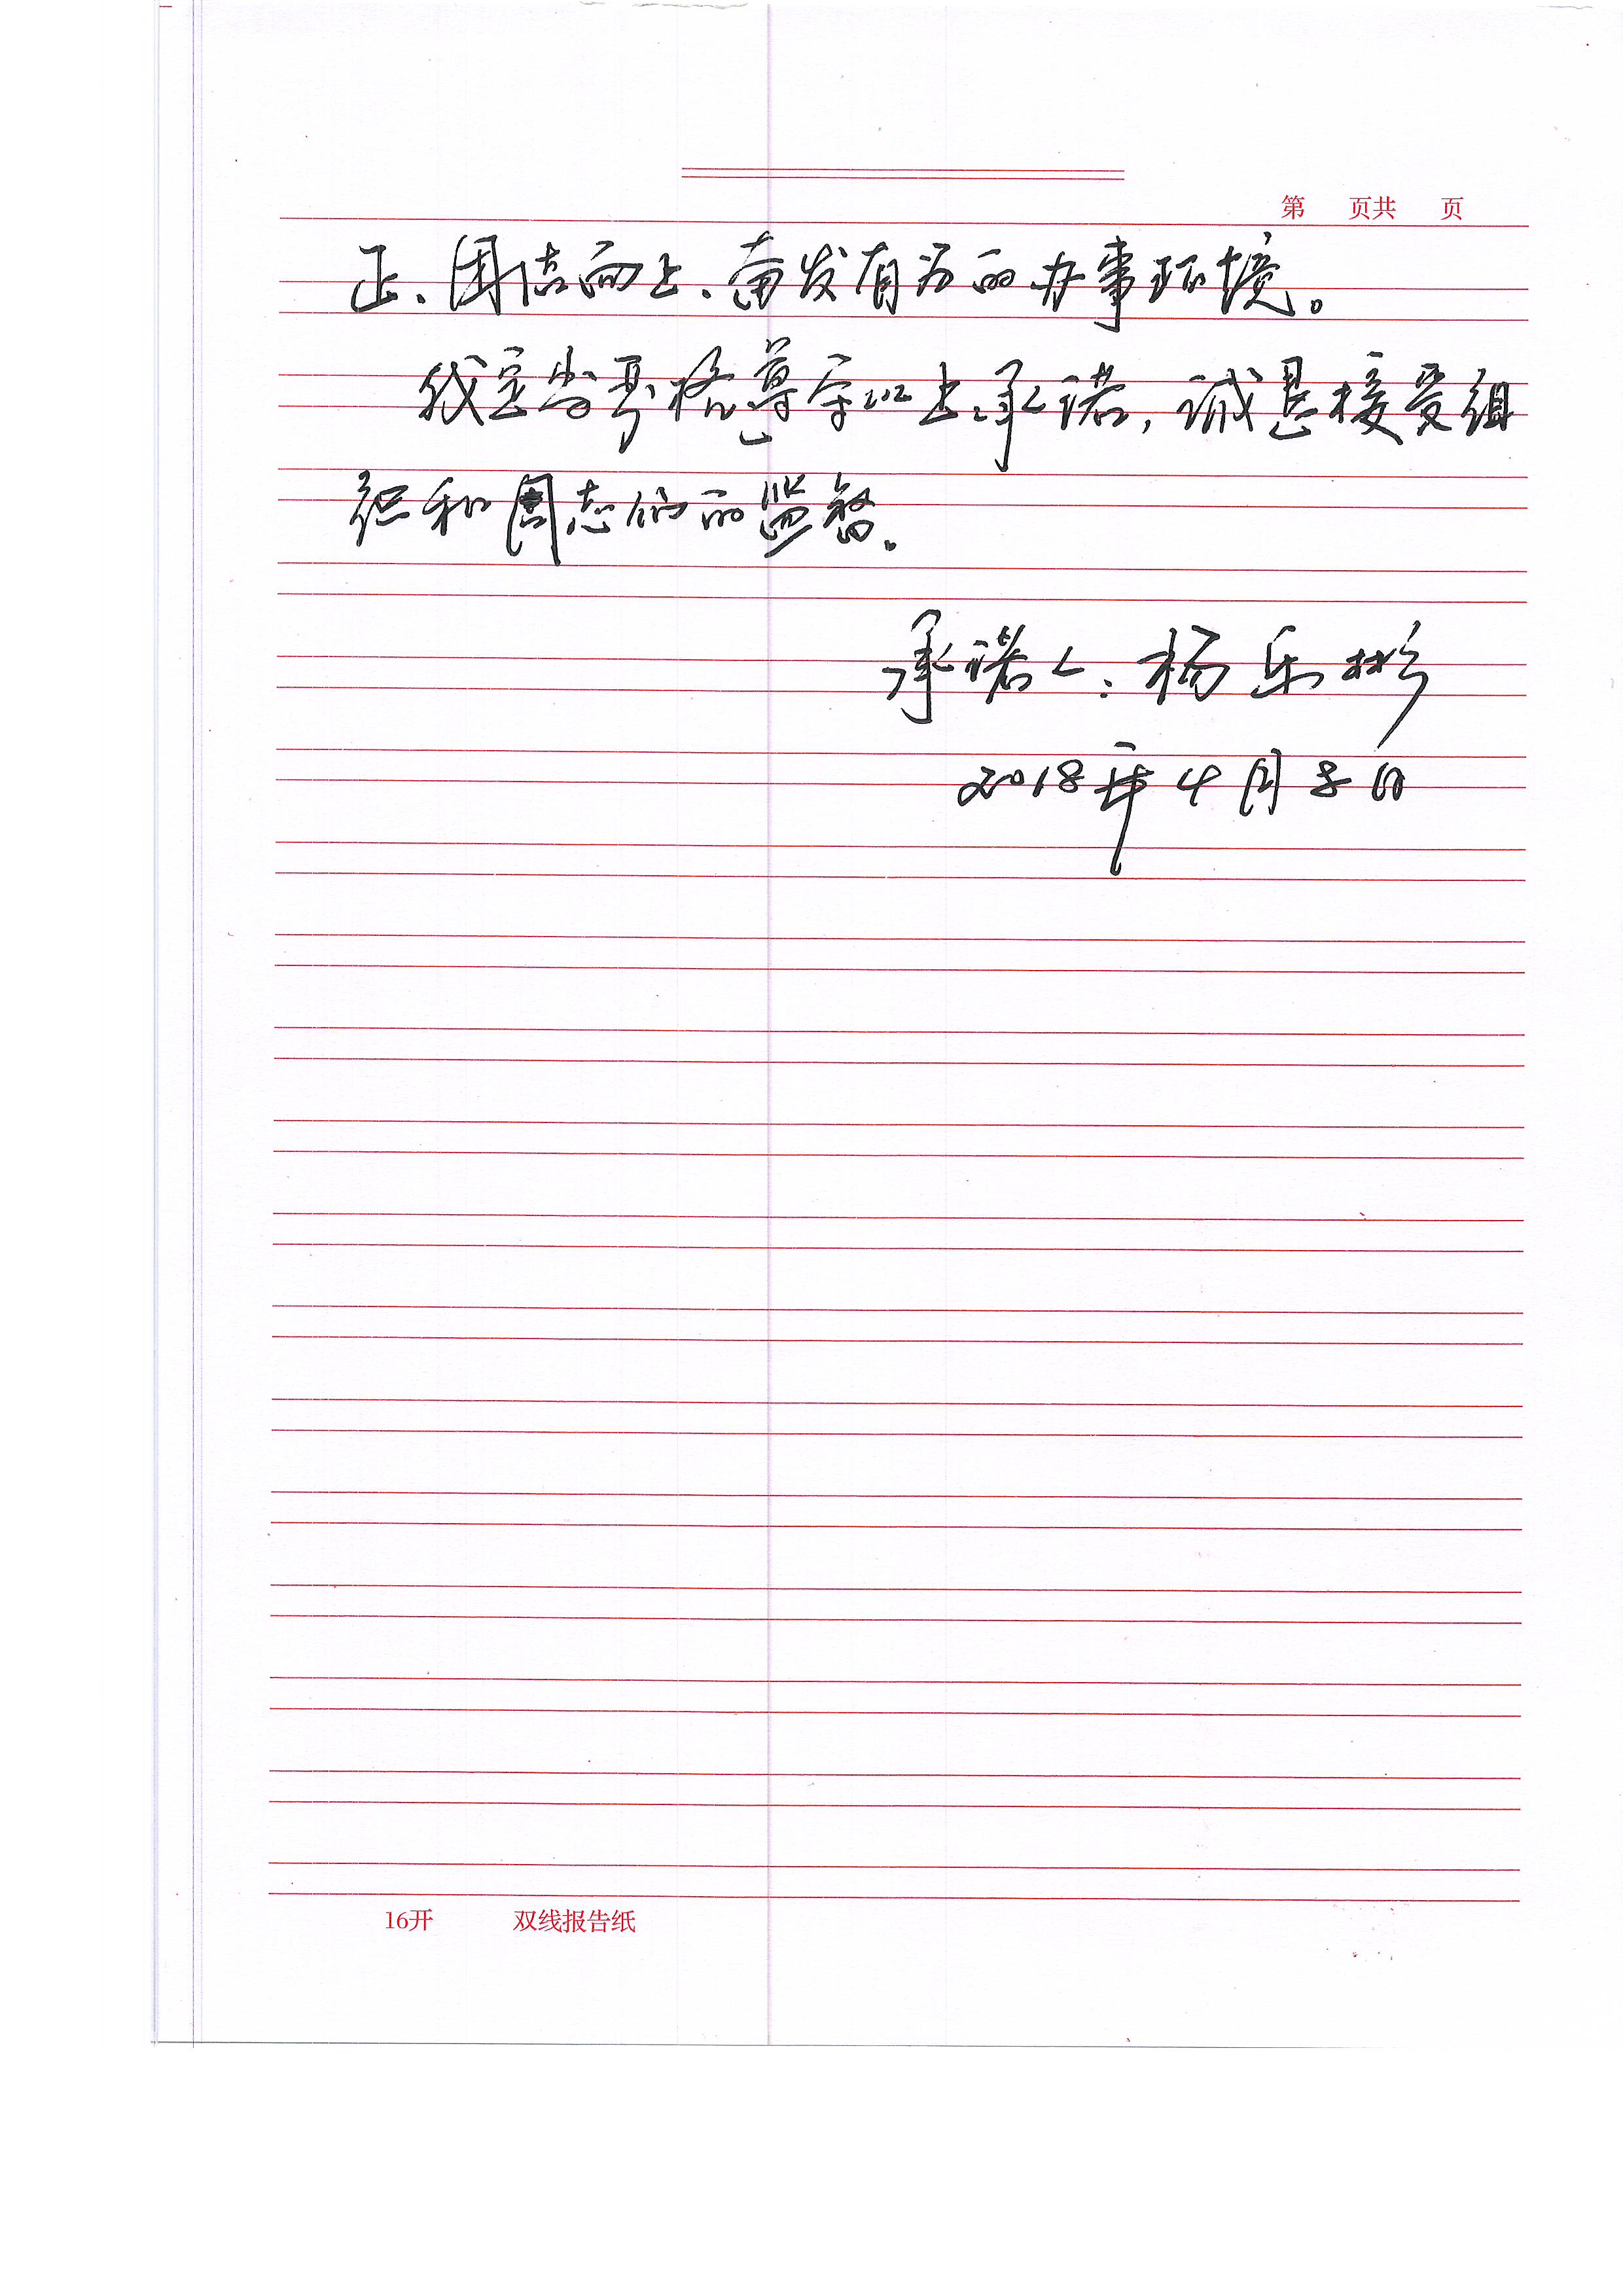 第 页共 页
正、团结向上、奋发有为的办事环境。
我定当严格遵守以上承诺，诚恳接受组
织和同志们的监督。
承诺人：杨乐彬
2018年4月8日
16开 双线报告纸